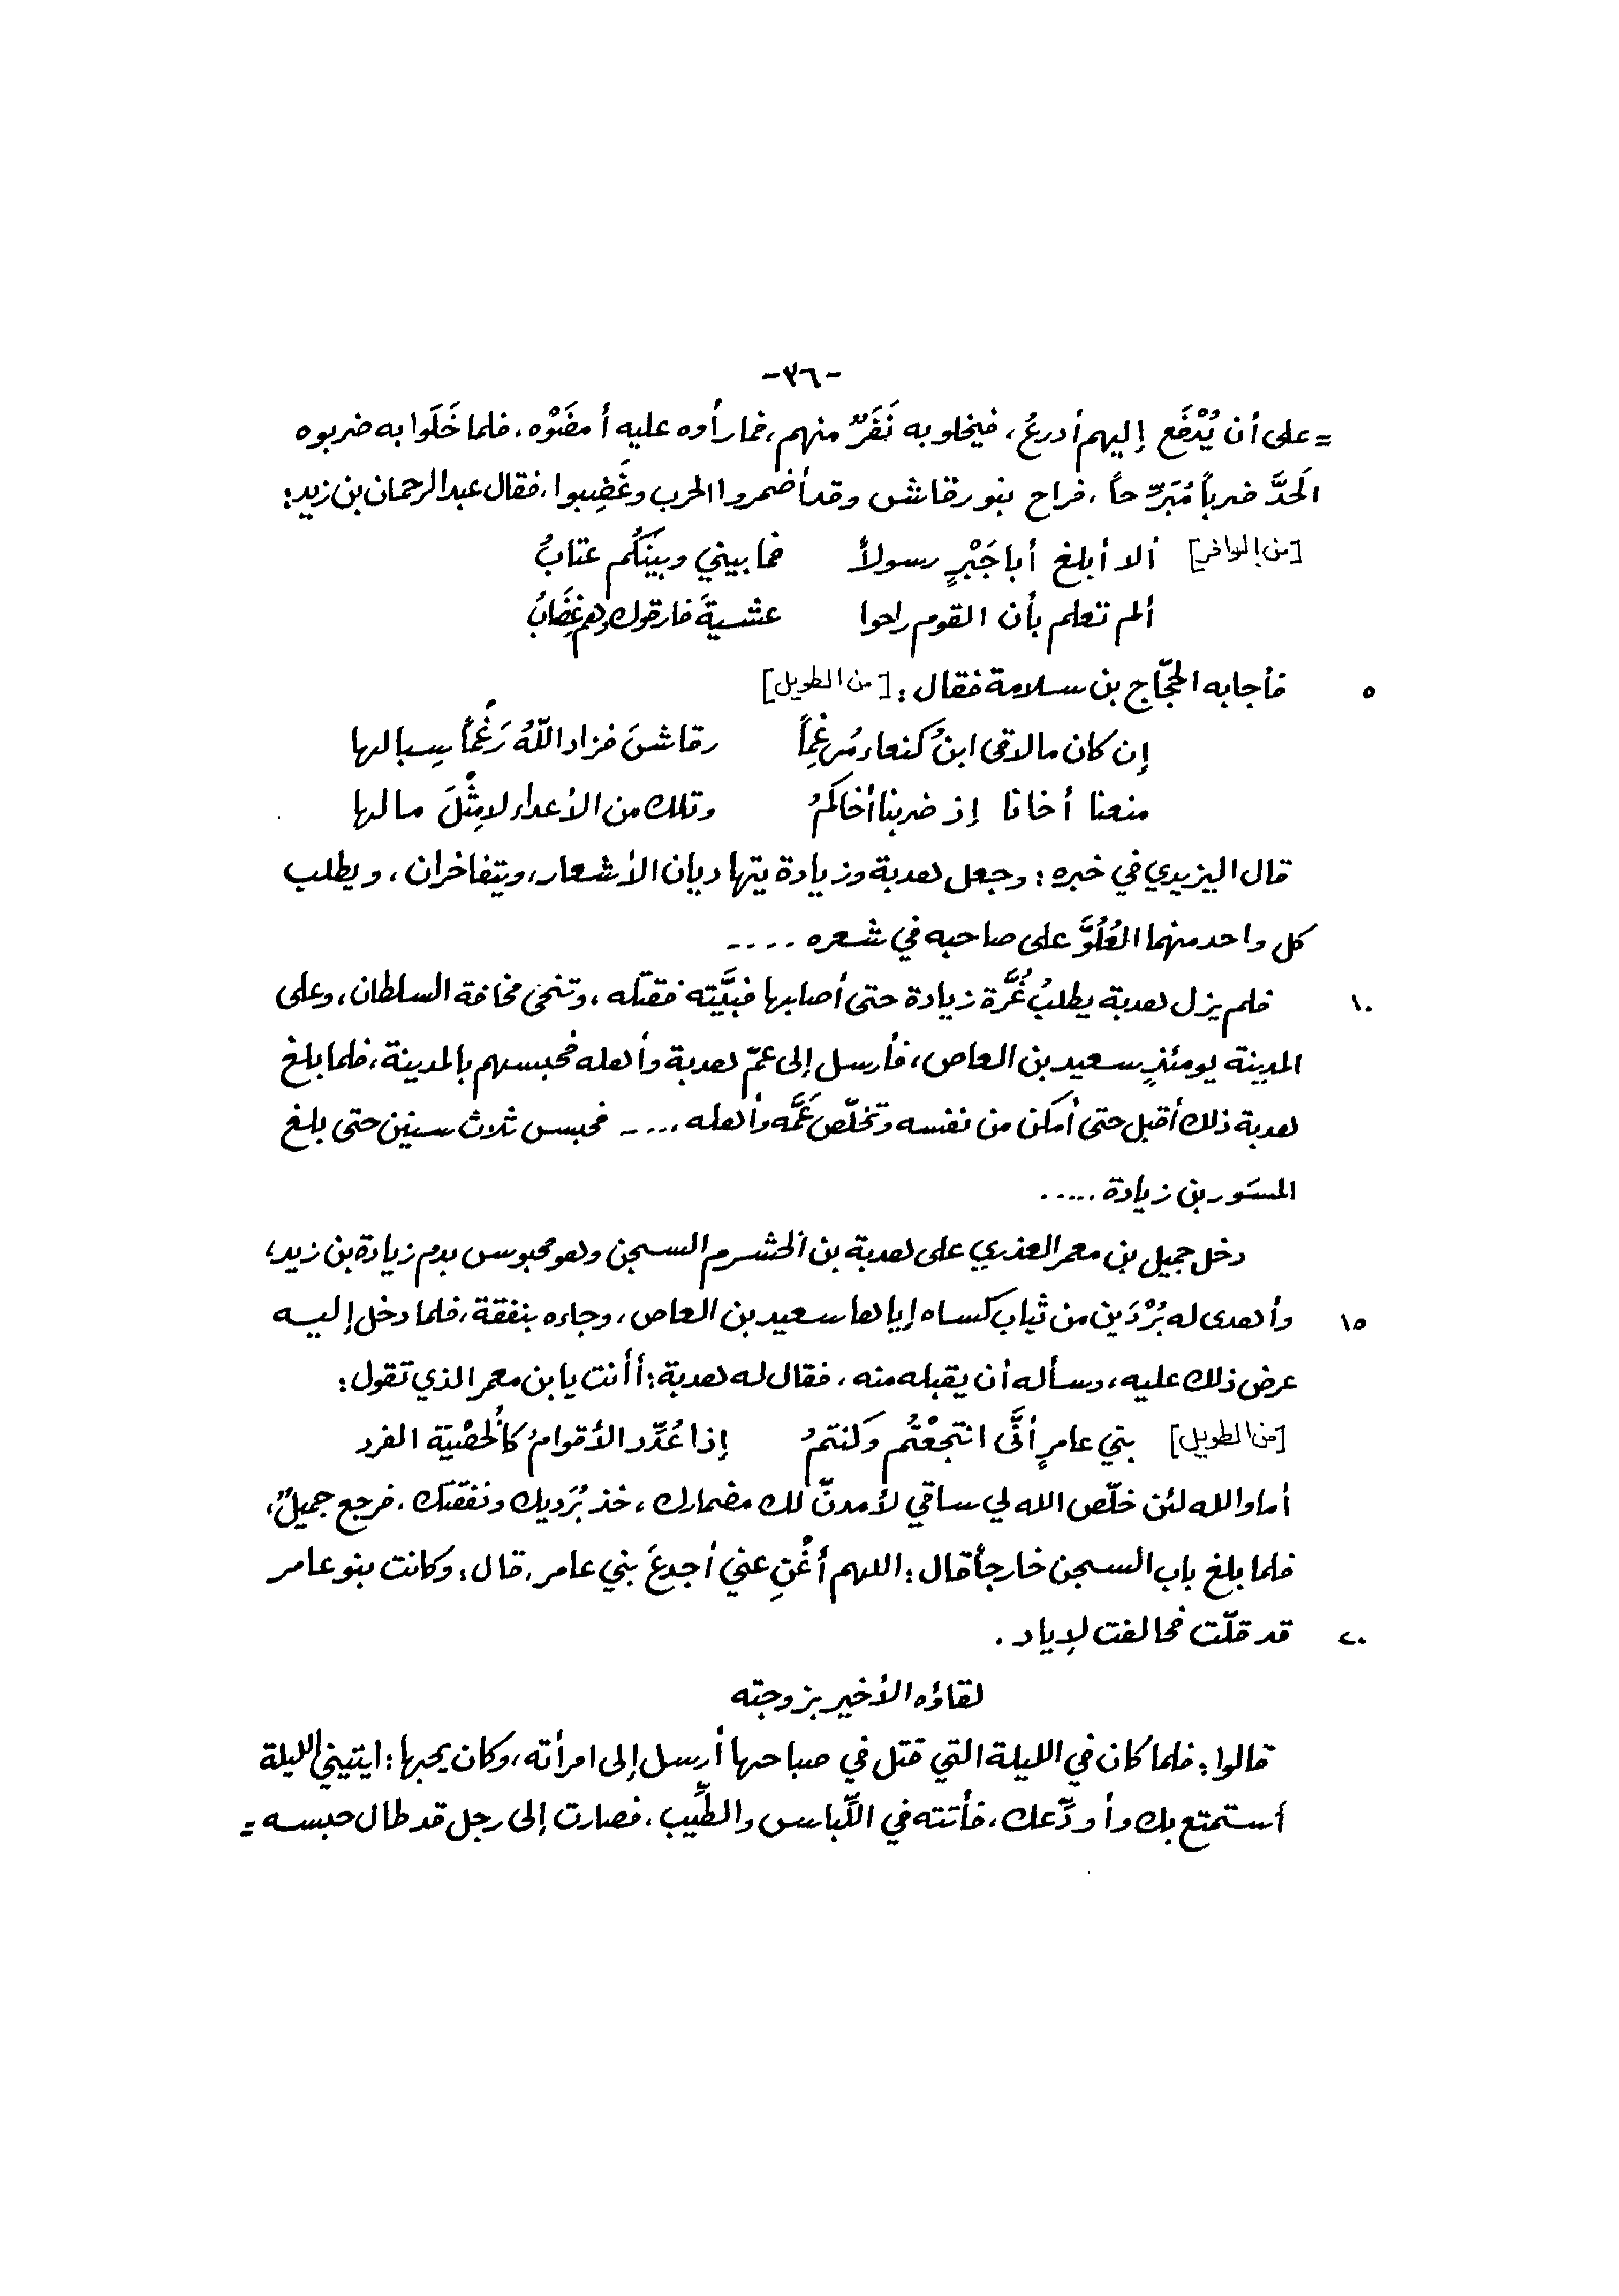 -٣٦-
= على أن يُدْفَع إليهم أدرعُ، فيخلو به نَفَرٌ منهم، فما رأوه عليه أمضَوْه، فلما خَلَوا به ضربوه
الحَدَّ ضرباً مُبَرِّحاً، فراح بنو رقاش وقد أضمروا الحرب وغَضِبوا، فقال عبد الرحمان بن زيد:
[من الوافر] ألا أبلغ أبا جَبْرٍ رسولاً فما بيني وبينَكُم عتابُ
ألم تعلم بأن القوم راحوا عشيةَ فارقوك وهم غِضَابُ
٥ فأجابه الحجّاج بن سلامة فقال: [من الطويل]
إن كان ما لاقى ابنُ كنعاء مُرغِماً رقاشَ فزاد اللّهُ رَغْماً سِبالها
منعنا أخانا إذ ضربنا أخاكمُ وتلك من الأعداء لا مِثْلَ مالها
قال اليزيدي في خبره: وجعل هدبة وزيادة يتهاديان الأشعار، ويتفاخران، ويطلب
كل واحد منهما العُلُوَّ على صاحبه في شعره ....
١٠ فلم يزل هدبة يطلبُ غُرَّة زيادة حتى أصابها فبيَّته فقتله، وتنحى مخافة السلطان، وعلى
المدينة يومئذٍ سعيد بن العاص، فأرسل إلى عمّ هدبة وأهله فحبسهم بالمدينة، فلما بلغ
هدبة ذلك أقبل حتى أمكن من نفسه وتخلّص عَمَّه وأهله ..... فحبس ثلاث سنين حتى بلغ
المسَور بن زيادة .....
دخل جميل بن معمر العذري على هدبة بن الخشرم السجن وهو محبوس بدم زيادة بن زيد،
١٥ وأهدى له بُرْدَين من ثياب كساه إياها سعيد بن العاص، وجاءه بنفقة، فلما دخل إليه
عرض ذلك عليه، وسأله أن يقبله منه، فقال له هدبة: أأنت يا بن معمر الذي تقول:
[من الطويل] بني عامرٍ أنَّى انتجعْتُم وكنتمُ إذا عُدِّد الأقوامُ كالخُصْيَة الفرد
أما والله لئن خلّص الله لي ساقي لأمدنّ لك مضمارك، خذ بُرَديك ونفقتك، فرجع جميلٌ،
فلما بلغ باب السجن خارجاً قال: اللهم أغْنِ عني أجدعَ بني عامر، قال: وكانت بنو عامر
٢٠ قد قلّت فحالفت لإياد.
لقاؤه الأخير بزوجته
قالوا: فلما كان في الليلة التي قتل في صباحها أرسل إلى امرأته، وكان يحبها: ايتيني الليلة
أستمتع بك وأودّعك، فأتته في اللِّباس والطِّيب، فصارت إلى رجل قد طال حبسه =